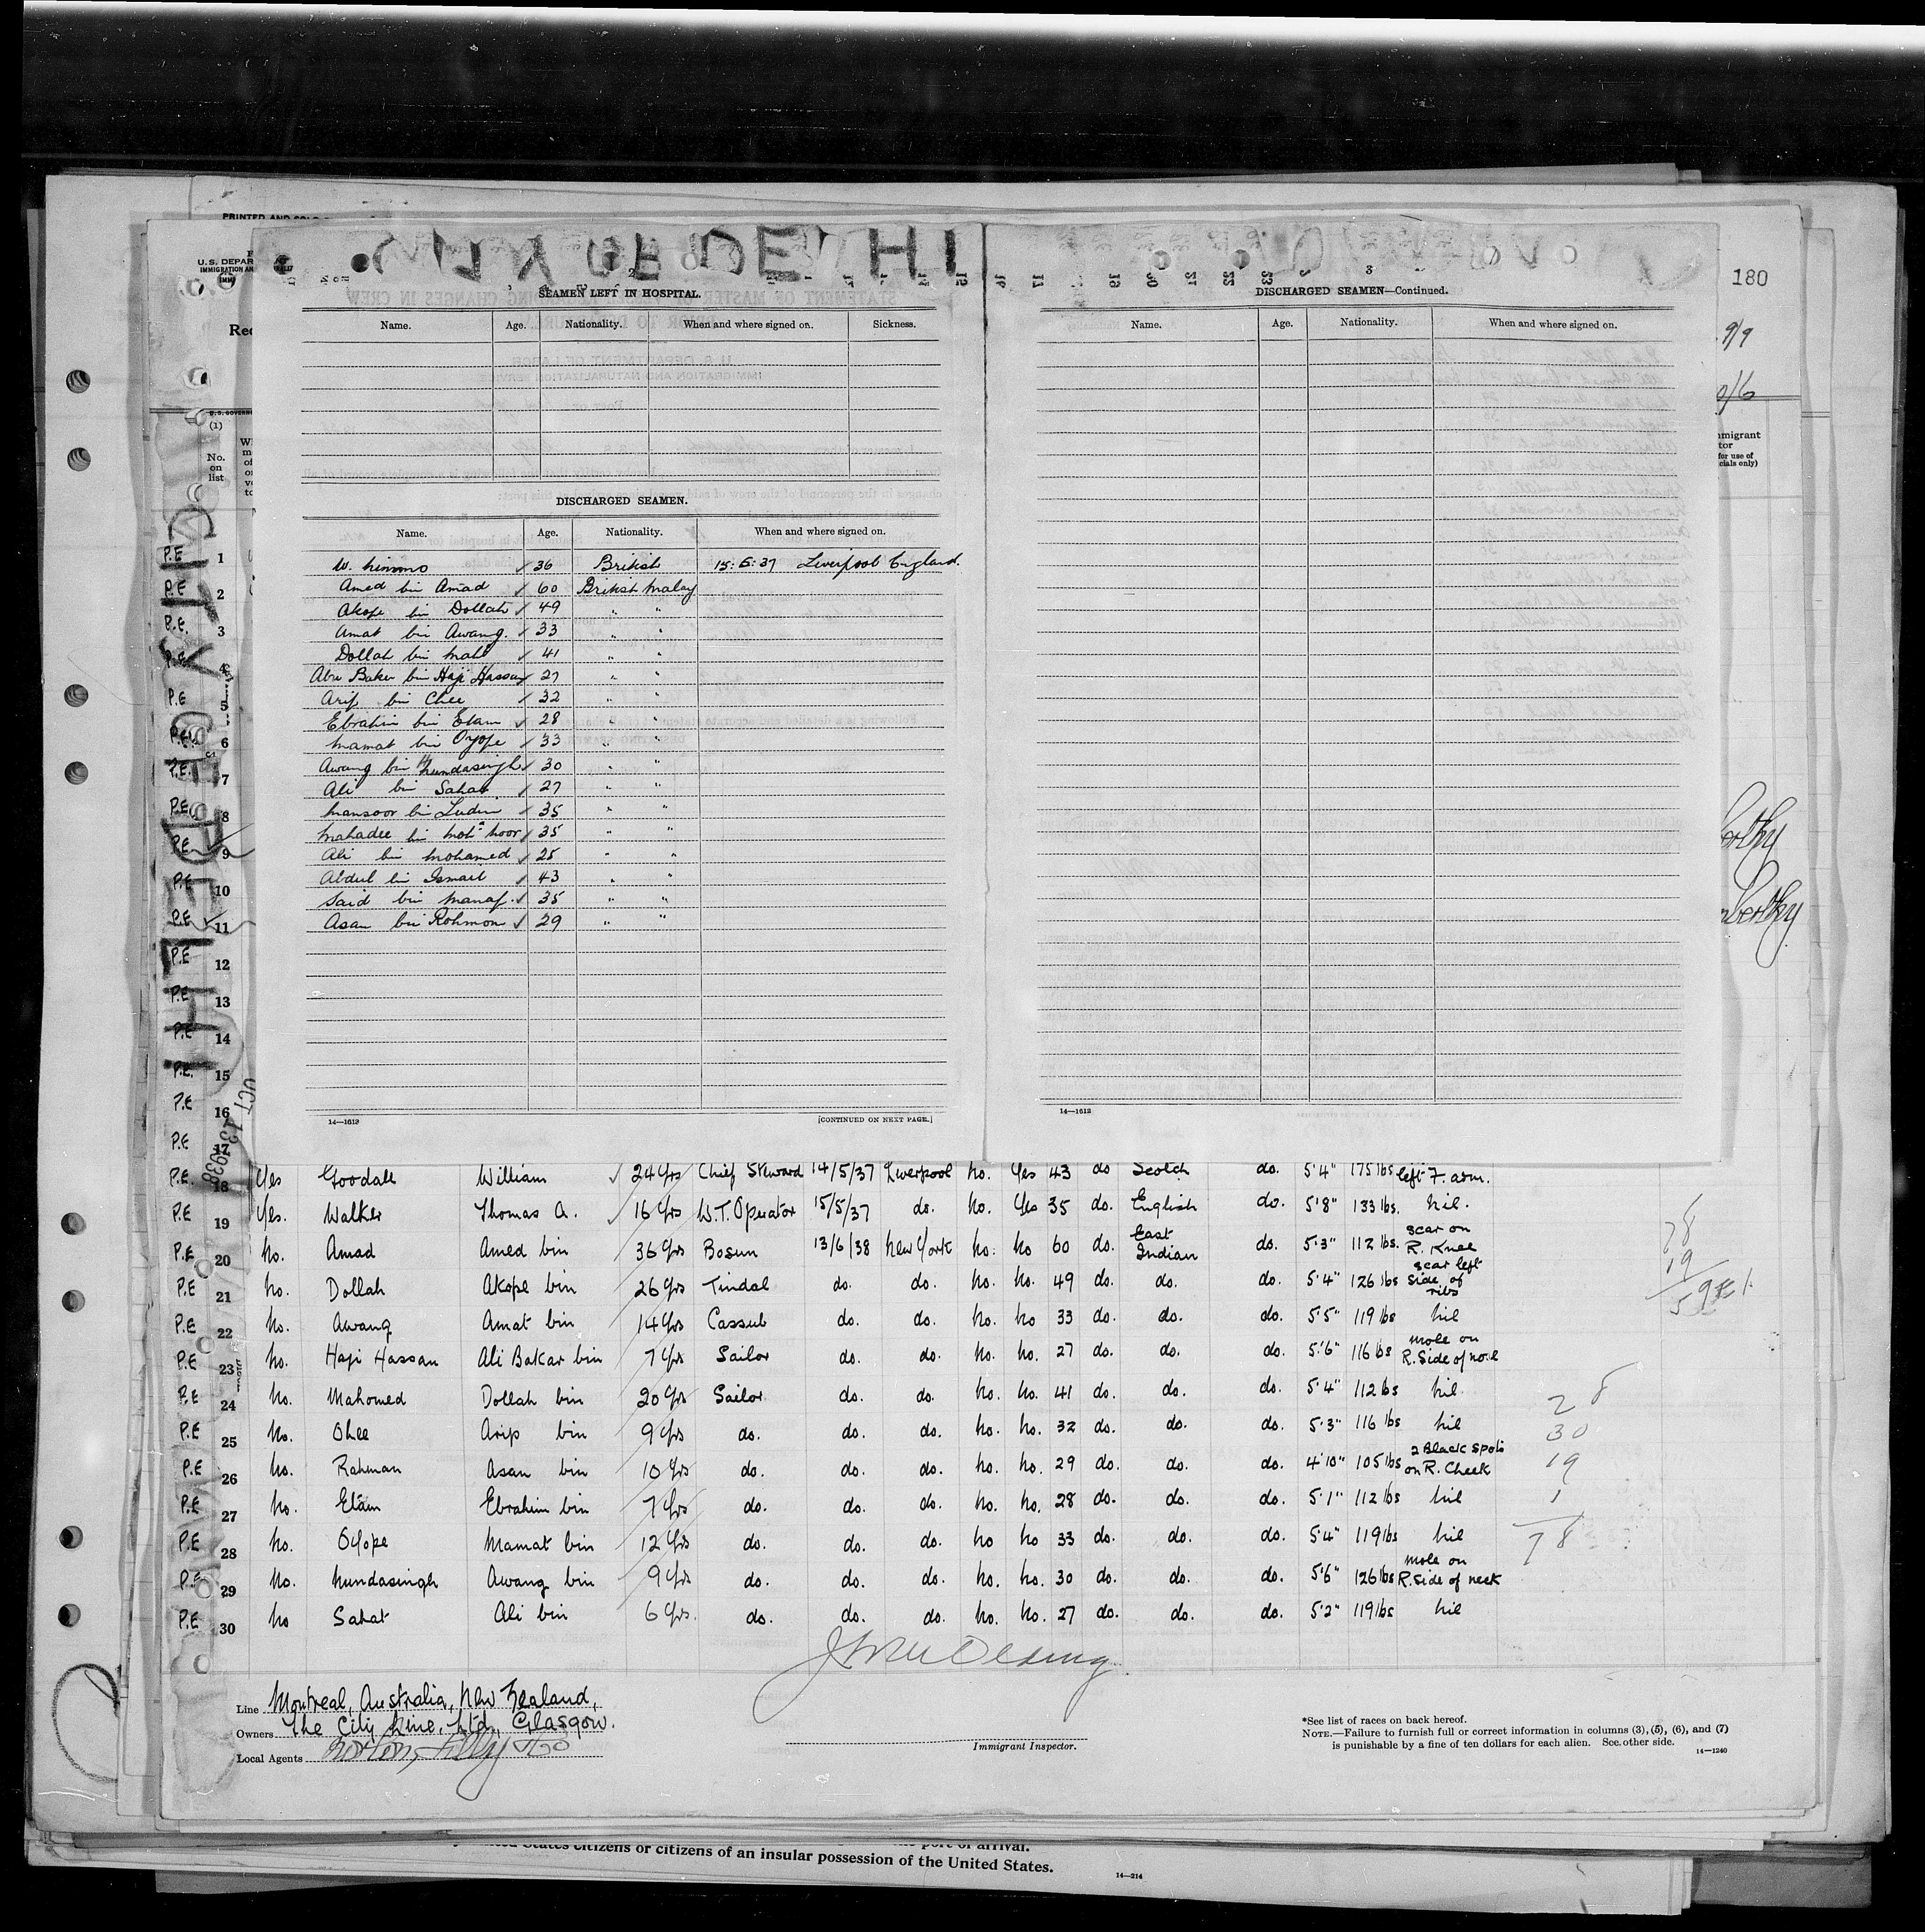 PRINTED AND SOLD
CITY OF DELHI
180
U.S. DEPAR
IMMIGRATION AN
SEAMEN LEFT IN HOSPITAL.
Name. Age. Nationality. When and where signed on. Sickness.
DISCHARGED SEAMEN.
Name. Age. Nationality. When and where signed on.
W. Nimmo ✓ 36 British 15:5:37 Liverpool England.
Amed bin Amad ✓ 60 British Malay
Akope bin Dollah ✓ 49 " "
Amat bin Awang. ✓ 33 " "
Dollah bin Mah ✓ 41 " "
Abu Baker bin Haji Hassan ✓ 27 " "
Arip bin Chee ✓ 32 " "
Ebrahim bin Etam ✓ 28 " "
Mamat bin Oyope ✓ 33 " "
Awang bin Nundasingh ✓ 30 " "
Ali bin Sahat ✓ 27 " "
Mansoor bin Ludin ✓ 35 " "
Mahadee bin Mohd Noor ✓ 35 " "
Ali bin Mohamed ✓ 25 " "
Abdul bin Ismail ✓ 43 " "
Said bin Manaf. ✓ 35 " "
Asan bin Rohmon ✓ 29 " "
14—1612 [CONTINUED ON NEXT PAGE.]
3
DISCHARGED SEAMEN—Continued.
Name. Age. Nationality. When and where signed on.
14—1612
9/9
(1)
No. on list
mmigrant
tor
for use of
cials only)
P.E 1
P.E 2
P.E. 3
P.E 4
P.E 5
P.E. 6
P.E. 7
P.E. 8
P.E 9
P.E 10
P.E 11
P.E 12
P.E 13
P.E 14
P.E. 15
P.E 16
P.E 17
CITY OF DELHI
OCT 13 1938
P.E. 18 Yes Goodall William ✓ 24 Yrs Chief Steward 14/5/37 Liverpool No. Yes 43 do Scotch do. 5'4" 175 lbs left F. arm.
P.E 19 Yes. Walker Thomas A. ✓ 16 Yrs W.T. Operator 15/5/37 do. No. Yes 35 do. English do. 5'8" 133 lbs. Nil.
P.E 20 No. Amad Amed bin 36 Yrs Bosun 13/6/38 New York No. No 60 do. East Indian do. 5'3" 112 lbs. scar on R. Knee
P.E 21 No. Dollah Akope bin 26 Yrs Tindal do. do. No. No. 49 do. do. do. 5'4" 126 lbs scar left side of ribs
P.E 22 No. Awang Amat bin 14 Yrs Cassub do. do. No. No 33 do. do. do. 5'5" 119 lbs Nil
P.E 23 No. Haji Hassan Ali Bakar bin 7 Yrs Sailor do. do. No. No. 27 do. do. do. 5'6" 116 lbs mole on R. Side of nose
P.E 24 No. Mahomed Dollah bin 20 Yrs Sailor do. do. No. No. 41 do. do. do. 5'4" 112 lbs Nil
P.E 25 No. Chee Arip bin 9 Yrs do. do. do. No. No. 32 do. do. do. 5'3" 116 lbs Nil
P.E 26 No. Rahman Asan bin 10 Yrs do. do. do. No. No. 29 do. do. do. 4'10" 105 lbs 2 Black spots on R. Cheek
P.E 27 No. Etam Ebrahim bin 7 Yrs do. do. do. No. No. 28 do. do. do. 5'1" 112 lbs Nil
P.E 28 No. Oyope Mamat bin 12 Yrs do. do. do. No No 33 do. do. do. 5'4" 119 lbs Nil
P.E 29 No. Nundasingh Awang bin 9 Yrs do. do. do. No. No. 30 do. do. do. 5'6" 126 lbs mole on R. Side of neck
P.E 30 No Sahat Ali bin 6 Yrs. do. do. do. No. No. 27 do. do. do. 5'2" 119 lbs Nil
78
19
28
30
19
1
78
Line Montreal, Australia, New Zealand,
Owners The City Line, Ltd, Glasgow.
Local Agents Norton, Lilly & Co
Immigrant Inspector.
*See list of races on back hereof.
NOTE.—Failure to furnish full or correct information in columns (3), (5), (6), and (7)
is punishable by a fine of ten dollars for each alien. See other side.
14—1240
United States citizens or citizens of an insular possession of the United States.
port of arrival.
14—214